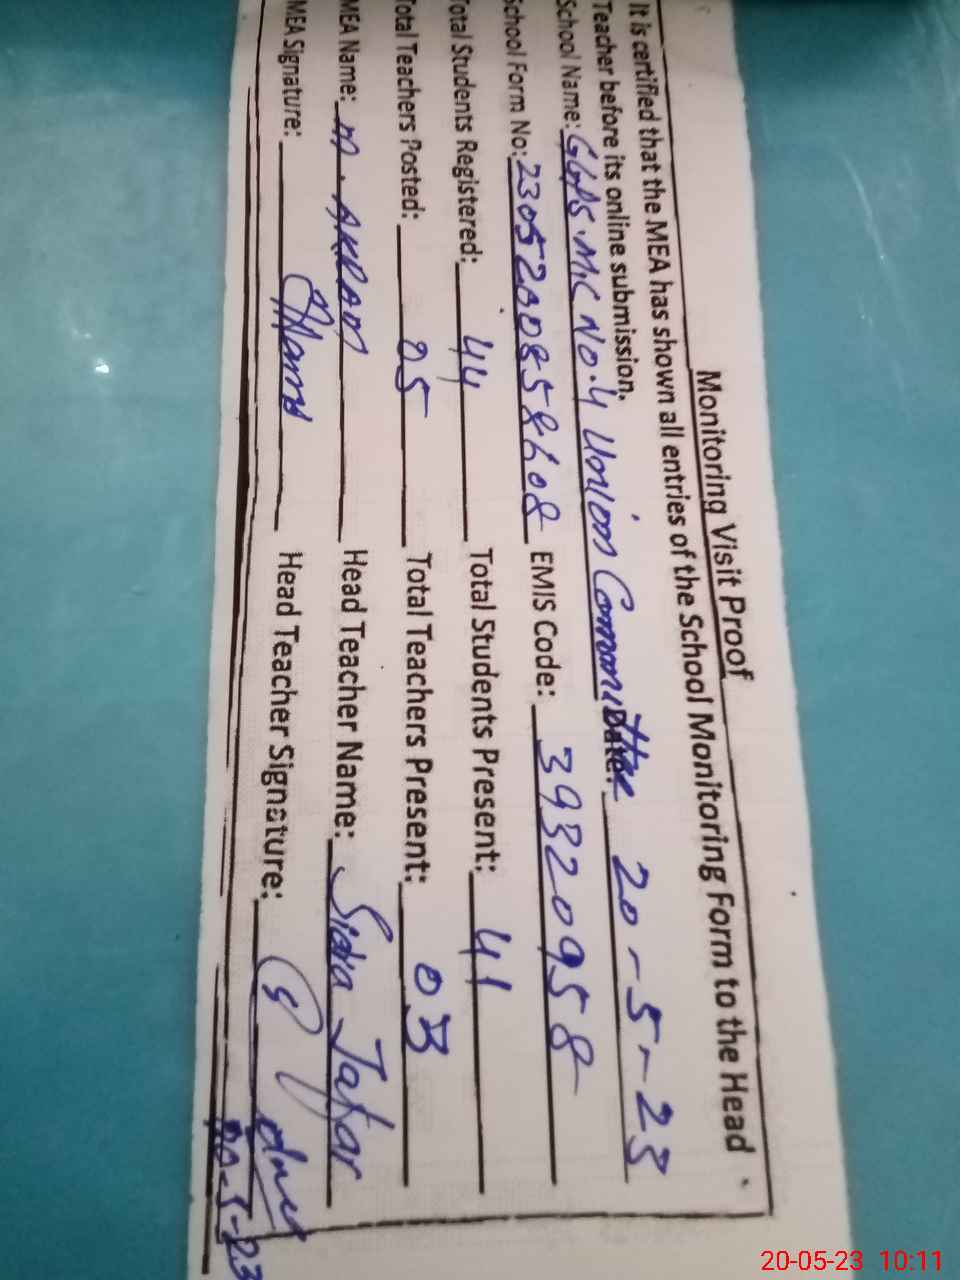 Monitoring Visit Proof
It is certified that the MEA has shown all entries of the School Monitoring Form to the Head
Teacher before its online submission.
School Name: GGPS.M.C No.4 Union Committee Date: 20-5-23
School Form No: EMIS Code: 39320958
Total Students Registered: 44 Total Students Present: 41
Total Teachers Posted: 05 Total Teachers Present: 03
MEA Name: M. AKRAM Head Teacher Name: Sidra Jafar
MEA Signature: Head Teacher Signature:
20-5-23
20-05-23 10:11